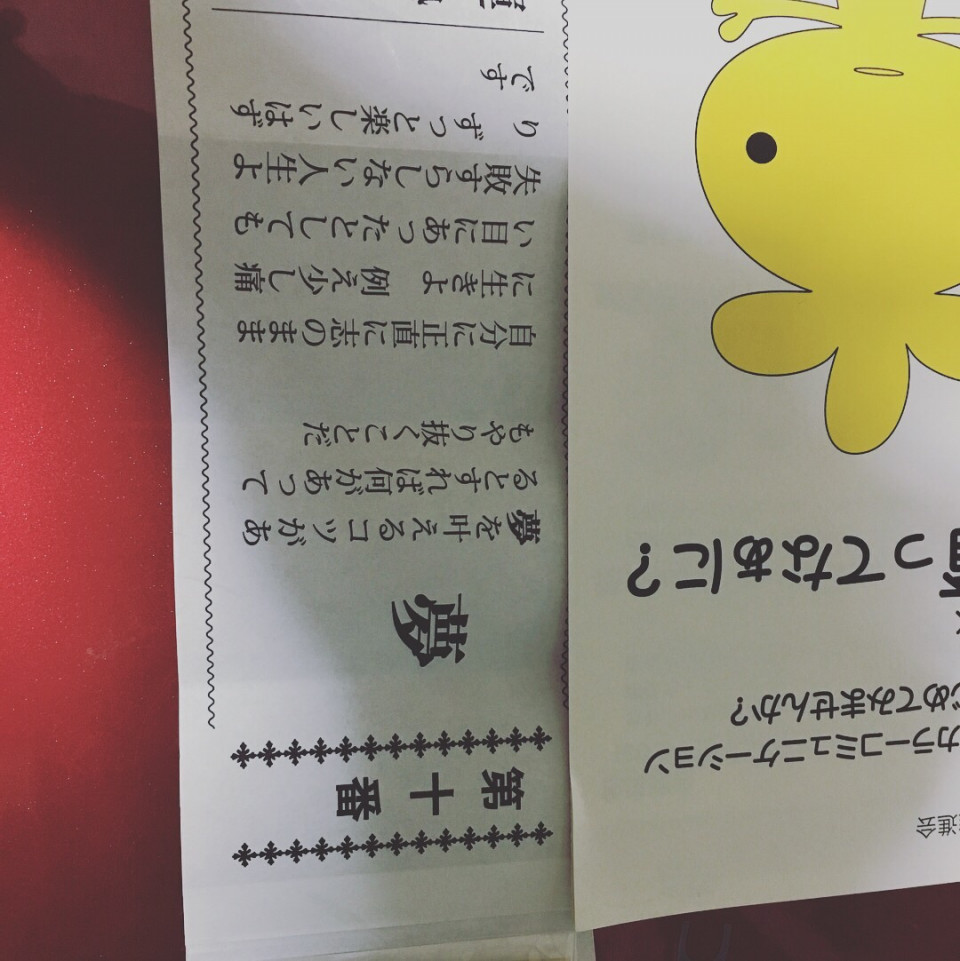 第十番
夢
夢を叶えるコツがあ
るとすれば何があって
もやり抜くことだ
自分に正直に志のまま
に生きよ　例え少し痛
い目にあったとしても
失敗すらしない人生よ
りずっと楽しいはず
です
進会
カラーコミュニケーション
じめてみませんか?
ってなぁに?